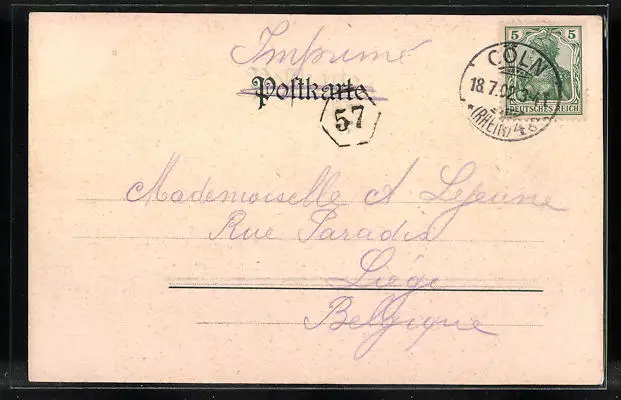 Imprimé
Postkarte
57
5 5
DEUTSCHES REICH
CÖLN
18.7.02
*(RHEIN)
Mademoiselle A Lejeune
Rue Paradis
Liége
Belgique